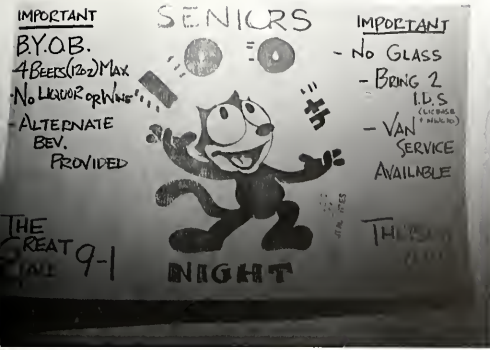 SENIORS
IMPORTANT
B.Y.O.B.
4 BEERS (12oz) MAX
- NO LIQUOR OR WINE
- ALTERNATE
BEV.
PROVIDED
THE
GREAT
9-1
th
NIGHT
IMPORTANT
- NO GLASS
- BRING 2
I.D.S
(LICENSE
- VAN
SERVICE
AVAILABLE